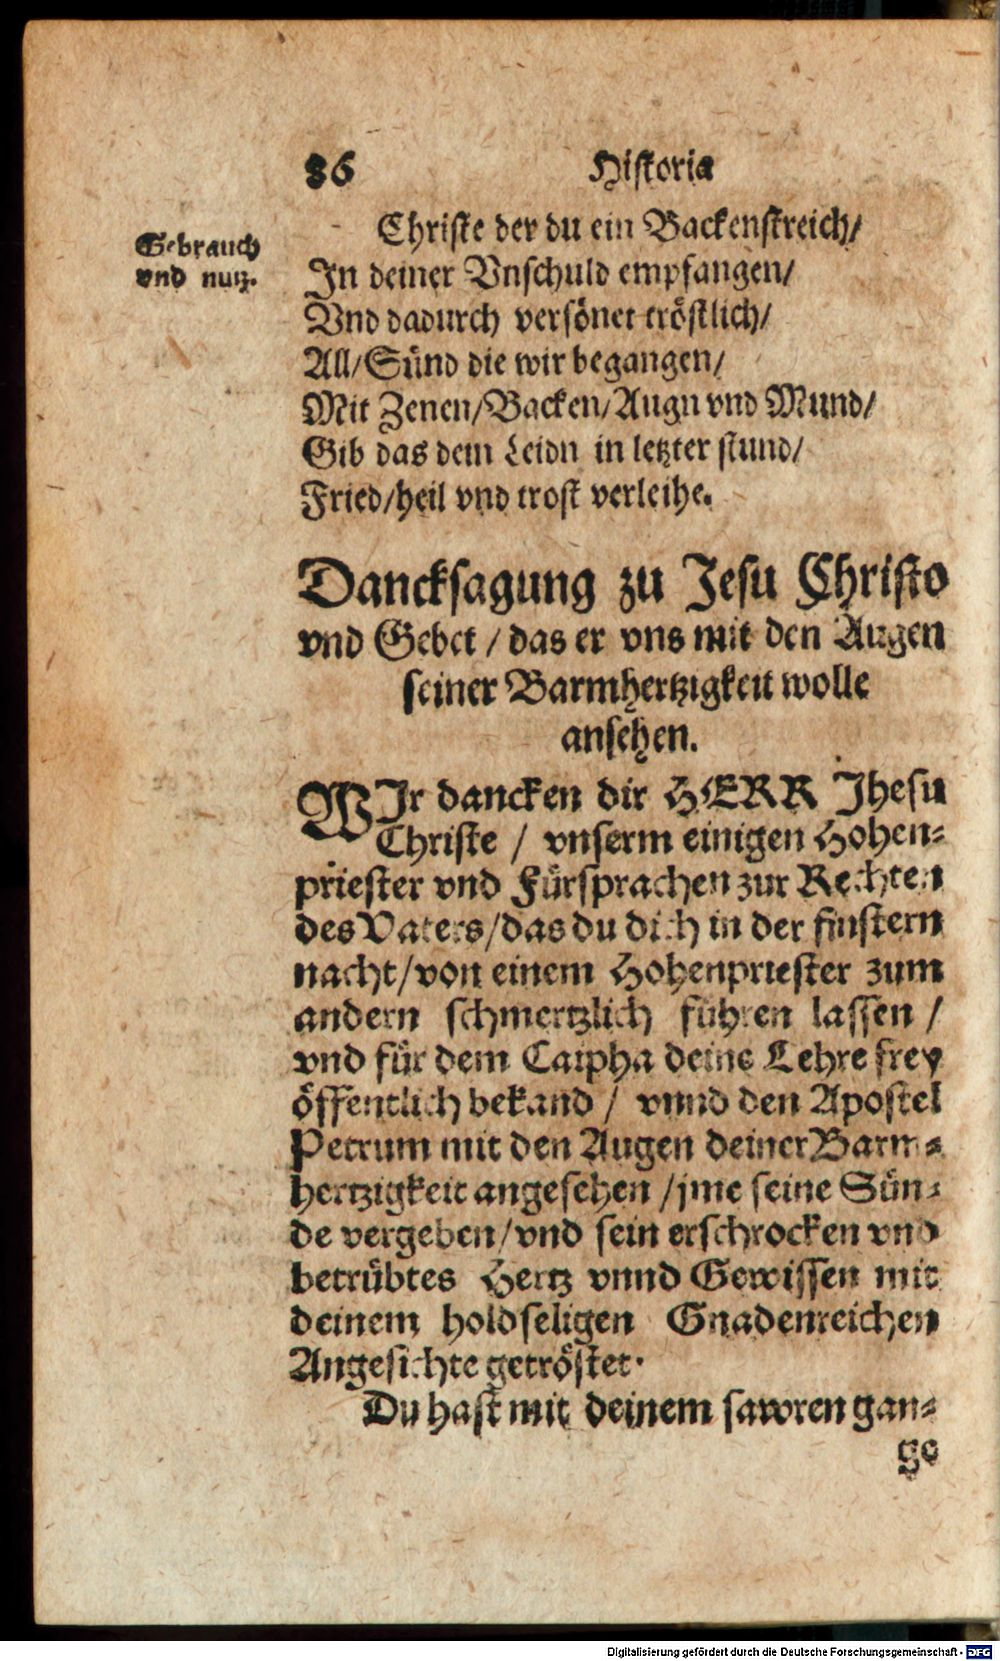 86 Historia
Gebrauch
vnd nutz.
Christe der du ein Backenstreich/
In deiner Vnschuld empfangen/
Vnd dadurch versönet tröstlich/
All/Sünd die wir begangen/
Mit Zenen/Backen/Augn vnd Mund/
Gib das dem Leidn in letzter stund/
Fried/heil vnd trost verleihe.
Dancksagung zu Jesu Christo
vnd Gebet / das er vns mit den Augen
seiner Barmhertzigkeit wolle
ansehen.
WIr dancken dir HERR Jhesu
Christe / vnserm einigen Hohen-
priester vnd Fürsprachen zur Rechten
des Vaters/das du dich in der finstern
nacht/von einem Hohenpriester zum
andern schmertzlich führen lassen /
vnd für dem Caipha deine Lehre frey
öffentlich bekand / vnnd den Apostel
Petrum mit den Augen deiner Barm-
hertzigkeit angesehen /jme seine Sün-
de vergeben/vnd sein erschrocken vnd
betrübtes Hertz vnnd Gewissen mit
deinem holdseligen Gnadenreichen
Angesichte getröstet.
Du hast mit deinem sawren gan-
ge
Digitalisierung gefördert durch die Deutsche Forschungsgemeinschaft - DFG